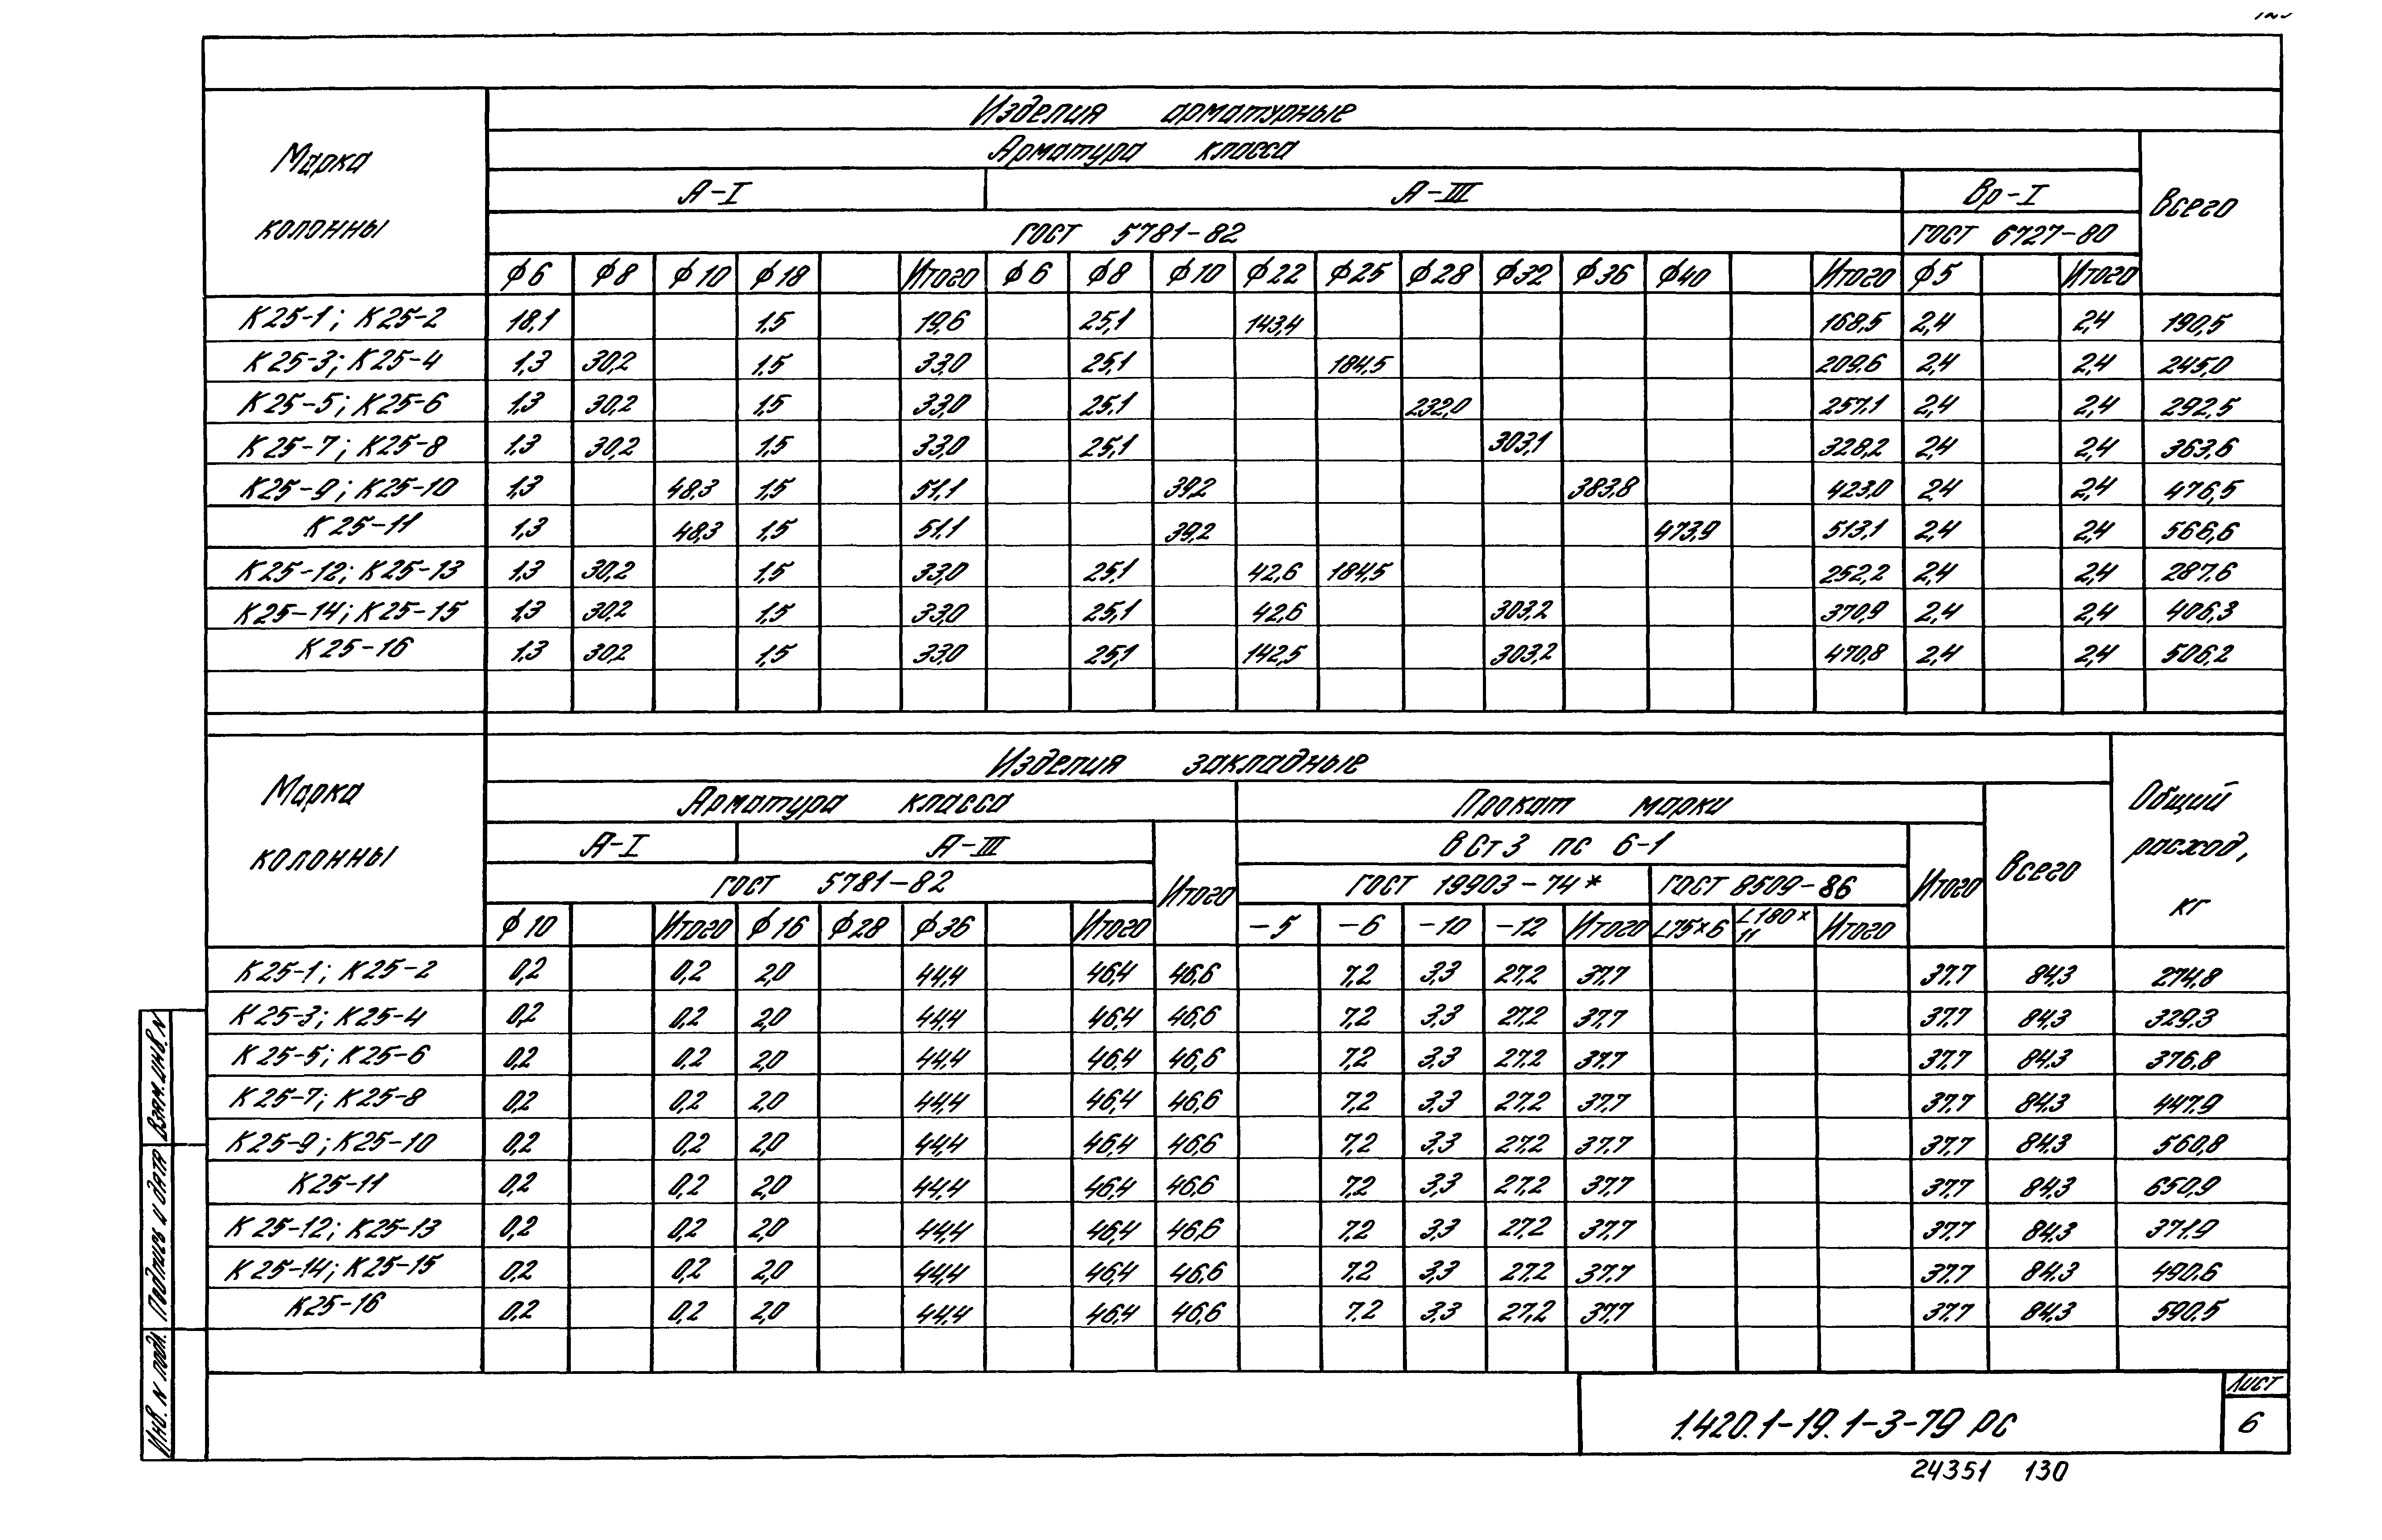 Изделия арматурные
Марка колонны
Арматура класса
Всего
А-I А-III Вр-I
ГОСТ 5781-82 ГОСТ 6727-80
ϕ6 ϕ8 ϕ10 ϕ18 Итого ϕ6 ϕ8 ϕ10 ϕ22 ϕ25 ϕ28 ϕ32 ϕ36 ϕ40 Итого ϕ5 Итого
К25-1; К25-2 18,1 1,5 19,6 25,1 143,4 168,5 2,4 2,4 190,5
К25-3; К25-4 1,3 30,2 1,5 33,0 25,1 184,5 209,6 2,4 2,4 245,0
К25-5; К25-6 1,3 30,2 1,5 33,0 25,1 232,0 257,1 2,4 2,4 292,5
К25-7; К25-8 1,3 30,2 1,5 33,0 25,1 303,1 328,2 2,4 2,4 363,6
К25-9; К25-10 1,3 48,3 1,5 51,1 39,2 383,8 423,0 2,4 2,4 476,5
К25-11 1,3 48,3 1,5 51,1 39,2 473,9 513,1 2,4 2,4 566,6
К25-12; К25-13 1,3 30,2 1,5 33,0 25,1 42,6 184,5 252,2 2,4 2,4 287,6
К25-14; К25-15 1,3 30,2 1,5 33,0 25,1 42,6 303,2 370,9 2,4 2,4 406,3
К25-16 1,3 30,2 1,5 33,0 25,1 142,5 303,2 470,8 2,4 2,4 506,2
Изделия закладные
Марка колонны
Арматура класса Прокат марки
Всего
Общий расход, кг
А-I А-III Итого ВСт3 пс 6-1 Итого
ГОСТ 5781-82 ГОСТ 19903-74* ГОСТ 8509-86
ϕ10 Итого ϕ16 ϕ28 ϕ36 Итого -5 -6 -10 -12 Итого L75×6 L180×11 Итого
К25-1; К25-2 0,2 0,2 2,0 44,4 46,4 46,6 7,2 3,3 27,2 37,7 37,7 84,3 274,8
К25-3; К25-4 0,2 0,2 2,0 44,4 46,4 46,6 7,2 3,3 27,2 37,7 37,7 84,3 329,3
К25-5; К25-6 0,2 0,2 2,0 44,4 46,4 46,6 7,2 3,3 27,2 37,7 37,7 84,3 376,8
К25-7; К25-8 0,2 0,2 2,0 44,4 46,4 46,6 7,2 3,3 27,2 37,7 37,7 84,3 447,9
К25-9; К25-10 0,2 0,2 2,0 44,4 46,4 46,6 7,2 3,3 27,2 37,7 37,7 84,3 560,8
К25-11 0,2 0,2 2,0 44,4 46,4 46,6 7,2 3,3 27,2 37,7 37,7 84,3 650,9
К25-12; К25-13 0,2 0,2 2,0 44,4 46,4 46,6 7,2 3,3 27,2 37,7 37,7 84,3 371,9
К25-14; К25-15 0,2 0,2 2,0 44,4 46,4 46,6 7,2 3,3 27,2 37,7 37,7 84,3 490,6
К25-16 0,2 0,2 2,0 44,4 46,4 46,6 7,2 3,3 27,2 37,7 37,7 84,3 590,5
Взам. инв. N
Подпись и дата
Инв. N подл.
1.420.1-19.1-3-79 РС
Лист
6
24351 130